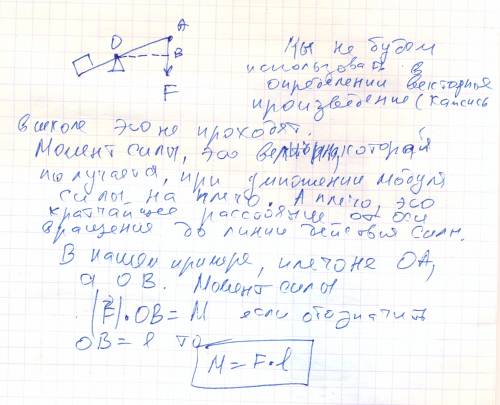 A
O
B
F
Мы не будем
использовать в
определении векторное
произведение (кажись
в школе это не проходят.
Момент силы, это величина, который
получается, при умножении модуля
силы на плечо. А плечо, это
кратчайшее расстояние от оси
вращения до линии действия силы.
В нашем примере, плечо не OA,
а OB. Момент силы
|F|·OB = M если обозначить
OB = l то
M = F·l